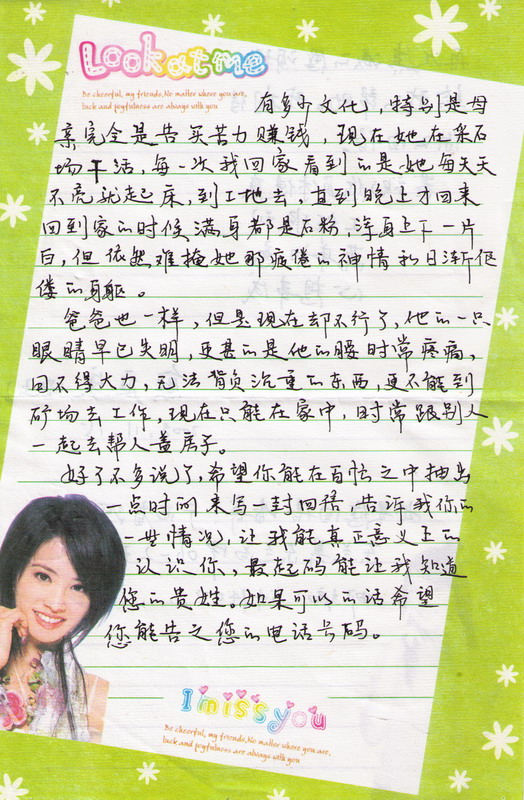 Look at me
Be cheerful, my friends.No matter where you are,
luck and joyfulness are always with you
有多少文化，特别是母
亲完全是告买苦力赚钱，现在她在采石
场干活，每一次我回家看到的是她每天天
不亮就起床，到工地去，直到晚上才回来
回到家的时候满身都是石粉，浑身上下一片
白，但依然难掩她那疲倦的神情和日渐佝
偻的身躯。
爸爸也一样，但是现在却不行了，他的一只
眼睛早已失明，更甚的是他的腰时常疼痛，
因不得大力，无法背负沉重的东西，更不能到
矿场去工作，现在只能在家中，时常跟别人
一起去帮人盖房子。
好了不多说了，希望你能在百忙之中抽出
一点时间来写一封回信，告诉我你的
一些情况，让我能真正意义上的
认识你、最起码能让我知道
您的贵姓。如果可以的话希望
您能告之您的电话号码。
I miss you
Be cheerful, my friends.No matter where you are,
luck and joyfulness are always with you